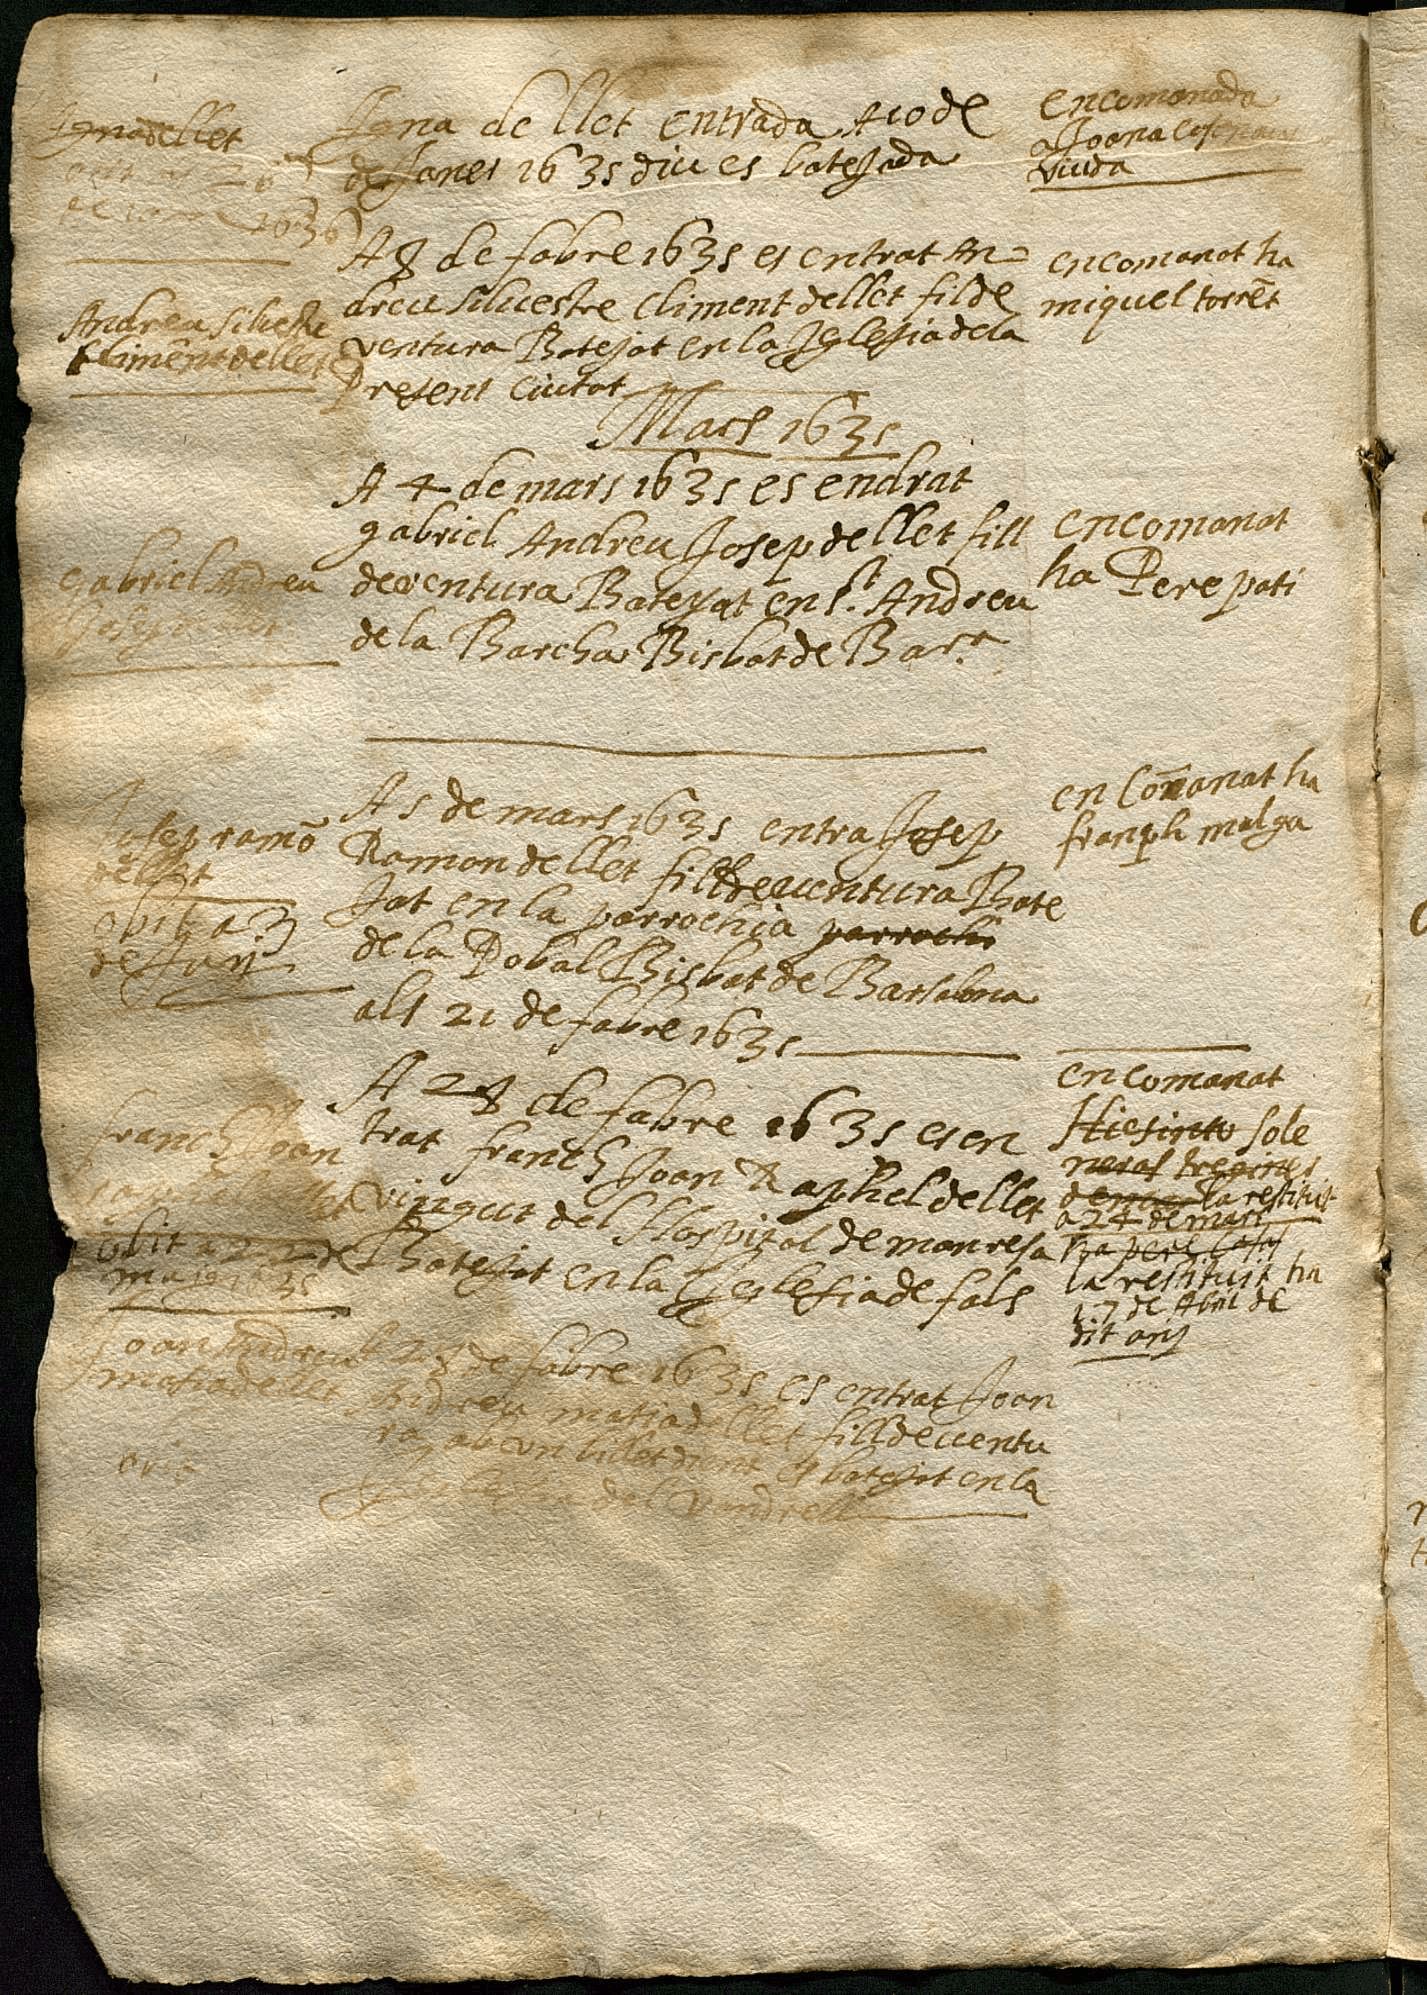 Igna de llet
de 1636
Igna de llet entrada A 10 de
de Janer 1635 diu es bateJada
encomanada
a Joana
viuda
Andreu silvestre
Climẽnt de llet
A 8 de fabre 1635 es entrat An=
dreu siluestre Climent de llet fil de
ventura Batejat en la Iglesia de la
Present Ciutat
encomanat ha
miquel torrẽt
Mars 1635
gabriel Andreu
Josep
A 4 de mars 1635 es endrat
gabriel Andreu Josep de llet fill
de ventura Bateyat en St. Andreu
de la Barcha Bisbat de Bar.na
encomanat
ha Pere pati
Josep ramõ
de llet
obit a 3
de Juŋ
A 5 de mars 1635 entra Josep
Ramon de llet fill de uentura Bate
Jat en la parrochia parrochi
de la Pobal Bisbat de Barsalona
als 21 de fabre 1635
en Comanat ha
malga
franch Joan
obit a 22 de
maig 1635
A 28 de fabre 1635 es en
trat franch Joan Raphel de llet
vingut del Hospital de manresa
Batejat en la Iglesia de fals
encomanat
Hiesinto sole
la restituit
a 24 de mars
ha pere
la restituit ha
17 de Abril de
dit anÿ
Joan Andreu
matia de llet
de fabre 1635 es entrat Joan
Andreu matia de llet fill de uentu
ra, ab vn billet dient es bateJat en la
Iglesia del vandrell